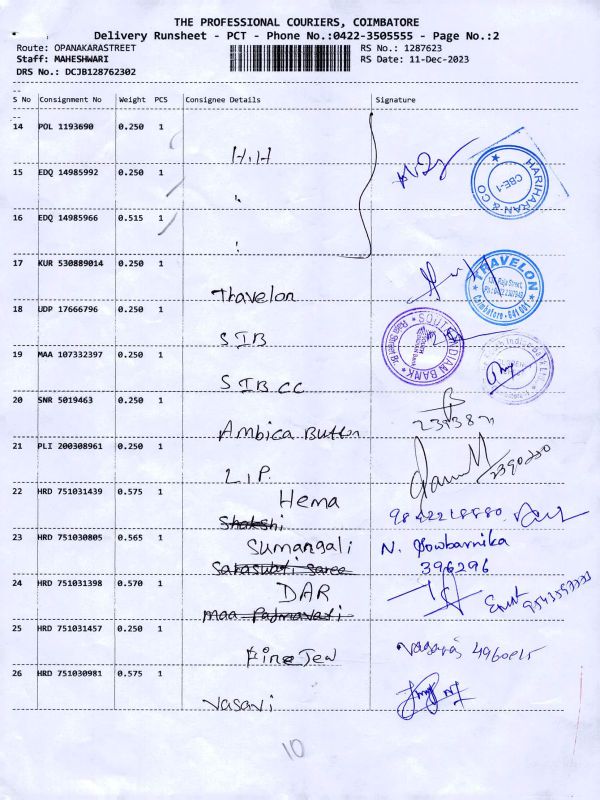 THE PROFESSIONAL COURIERS, COIMBATORE
Delivery Runsheet - PCT - Phone No.:0422-3505555 - Page No.:2
Route: OPANAKARASTREET RS No.: 1287623
Staff: MAHESHWARI RS Date: 11-Dec-2023
DRS No.: DCJB128762302
S No Consignment No Weight PCS Consignee Details Signature
14 POL 1193690 0.250 1
H.H
15 EDQ 14985992 0.250 1
HARIHARAN & CO
CBE-1
16 EDQ 14985966 0.515 1
17 KUR 530889014 0.250 1
Thavelon
TRAVELON
Raja Street,
Coimbatore - 641 001
18 UDP 17666796 0.250 1
SIB
SOUTH INDIAN BANK
19 MAA 107332397 0.250 1
SIB CC
20 SNR 5019463 0.250 1
Ambica Button
21 PLI 200308961 0.250 1
L.I.P.
2390220
22 HRD 751031439 0.575 1
Hema
Shakshi
9842218880
23 HRD 751030805 0.565 1
Sumangali
N. Sowbarnika
Saraswati Saree
396296
24 HRD 751031398 0.570 1
DAR
maa Padmavati
25 HRD 751031457 0.250 1
Fine Jew
26 HRD 751030981 0.575 1
Vasavi
10